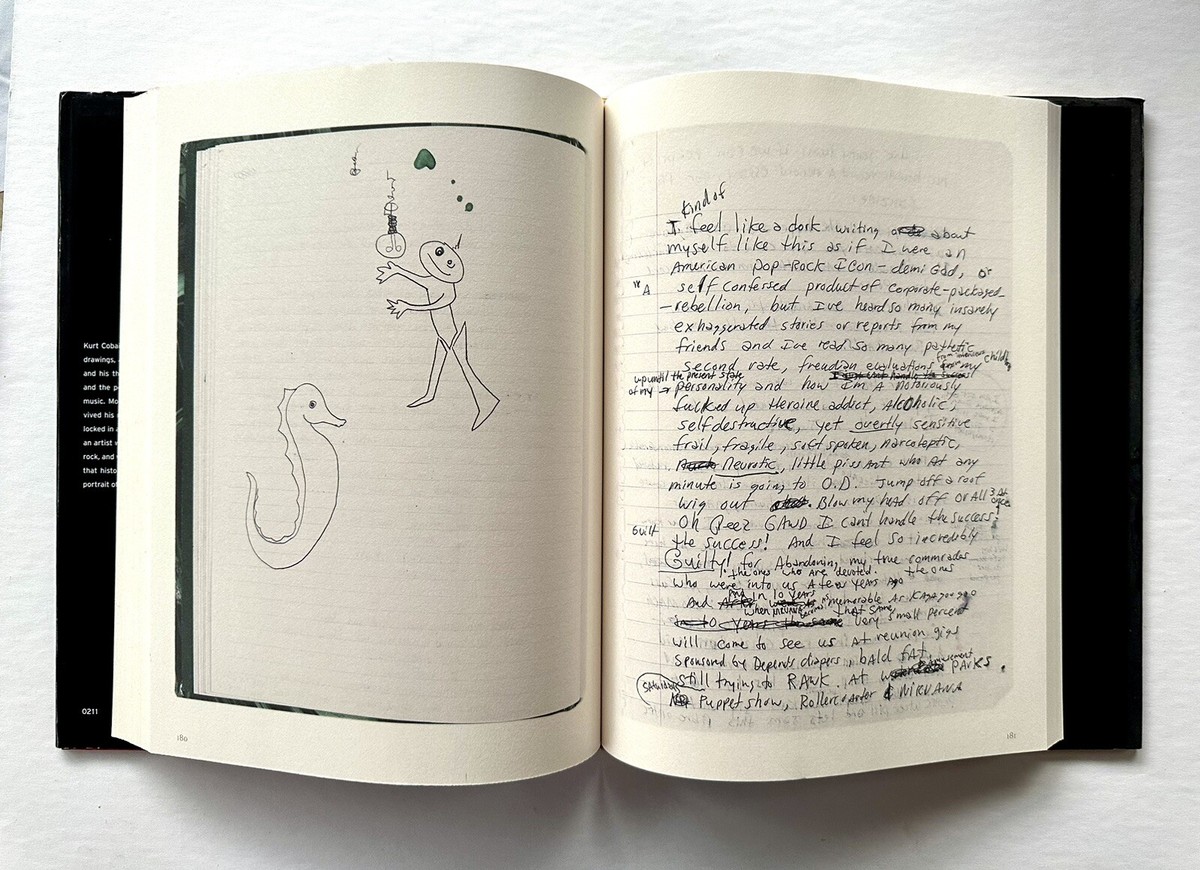 Kurt Coba
drawings, a
and his th
and the p
music. Mo
vived his
locked in a
an artist w
rock, and
that histo
portrait of
0211
180
kind of
I feel like a dork writing about
myself like this as if I were an
American pop-Rock Icon - demi God, or
"A self confessed product of corporate-packaged-
-rebellion, but I've heard so many insanely
exhaggerated stories or reports from my
friends and I've read so many pathetic
second rate, freudian evaluations from my childhood
up until the present state
of my → personality and how I'm A notoriously
fucked up Heroine addict, Alcoholic,
self destructive, yet overtly sensitive
frail, fragile, soft spoken, narcoleptic,
Neurotic, little piss Ant who At any
minute is going to O.D. Jump off a roof
wig out Blow my head off OR All 3 At once!
Oh Geez GAWD I cant handle the success!
Guilt the success! And I feel so incredibly
Guilty! for Abandoning my true commrades
the ones who are devoted. the ones
who were into us A few years Ago
And in 10 years
when NIRVANA becomes as memorable As Kajagoogoo
that same Very small percent
will come to see us At reunion gigs
sponsored by Depends diapers, bAld fAt,
still trying to RAWK. At amusement PARKS.
Saturdays Puppet show, Rollercoaster & NIRVANA
181